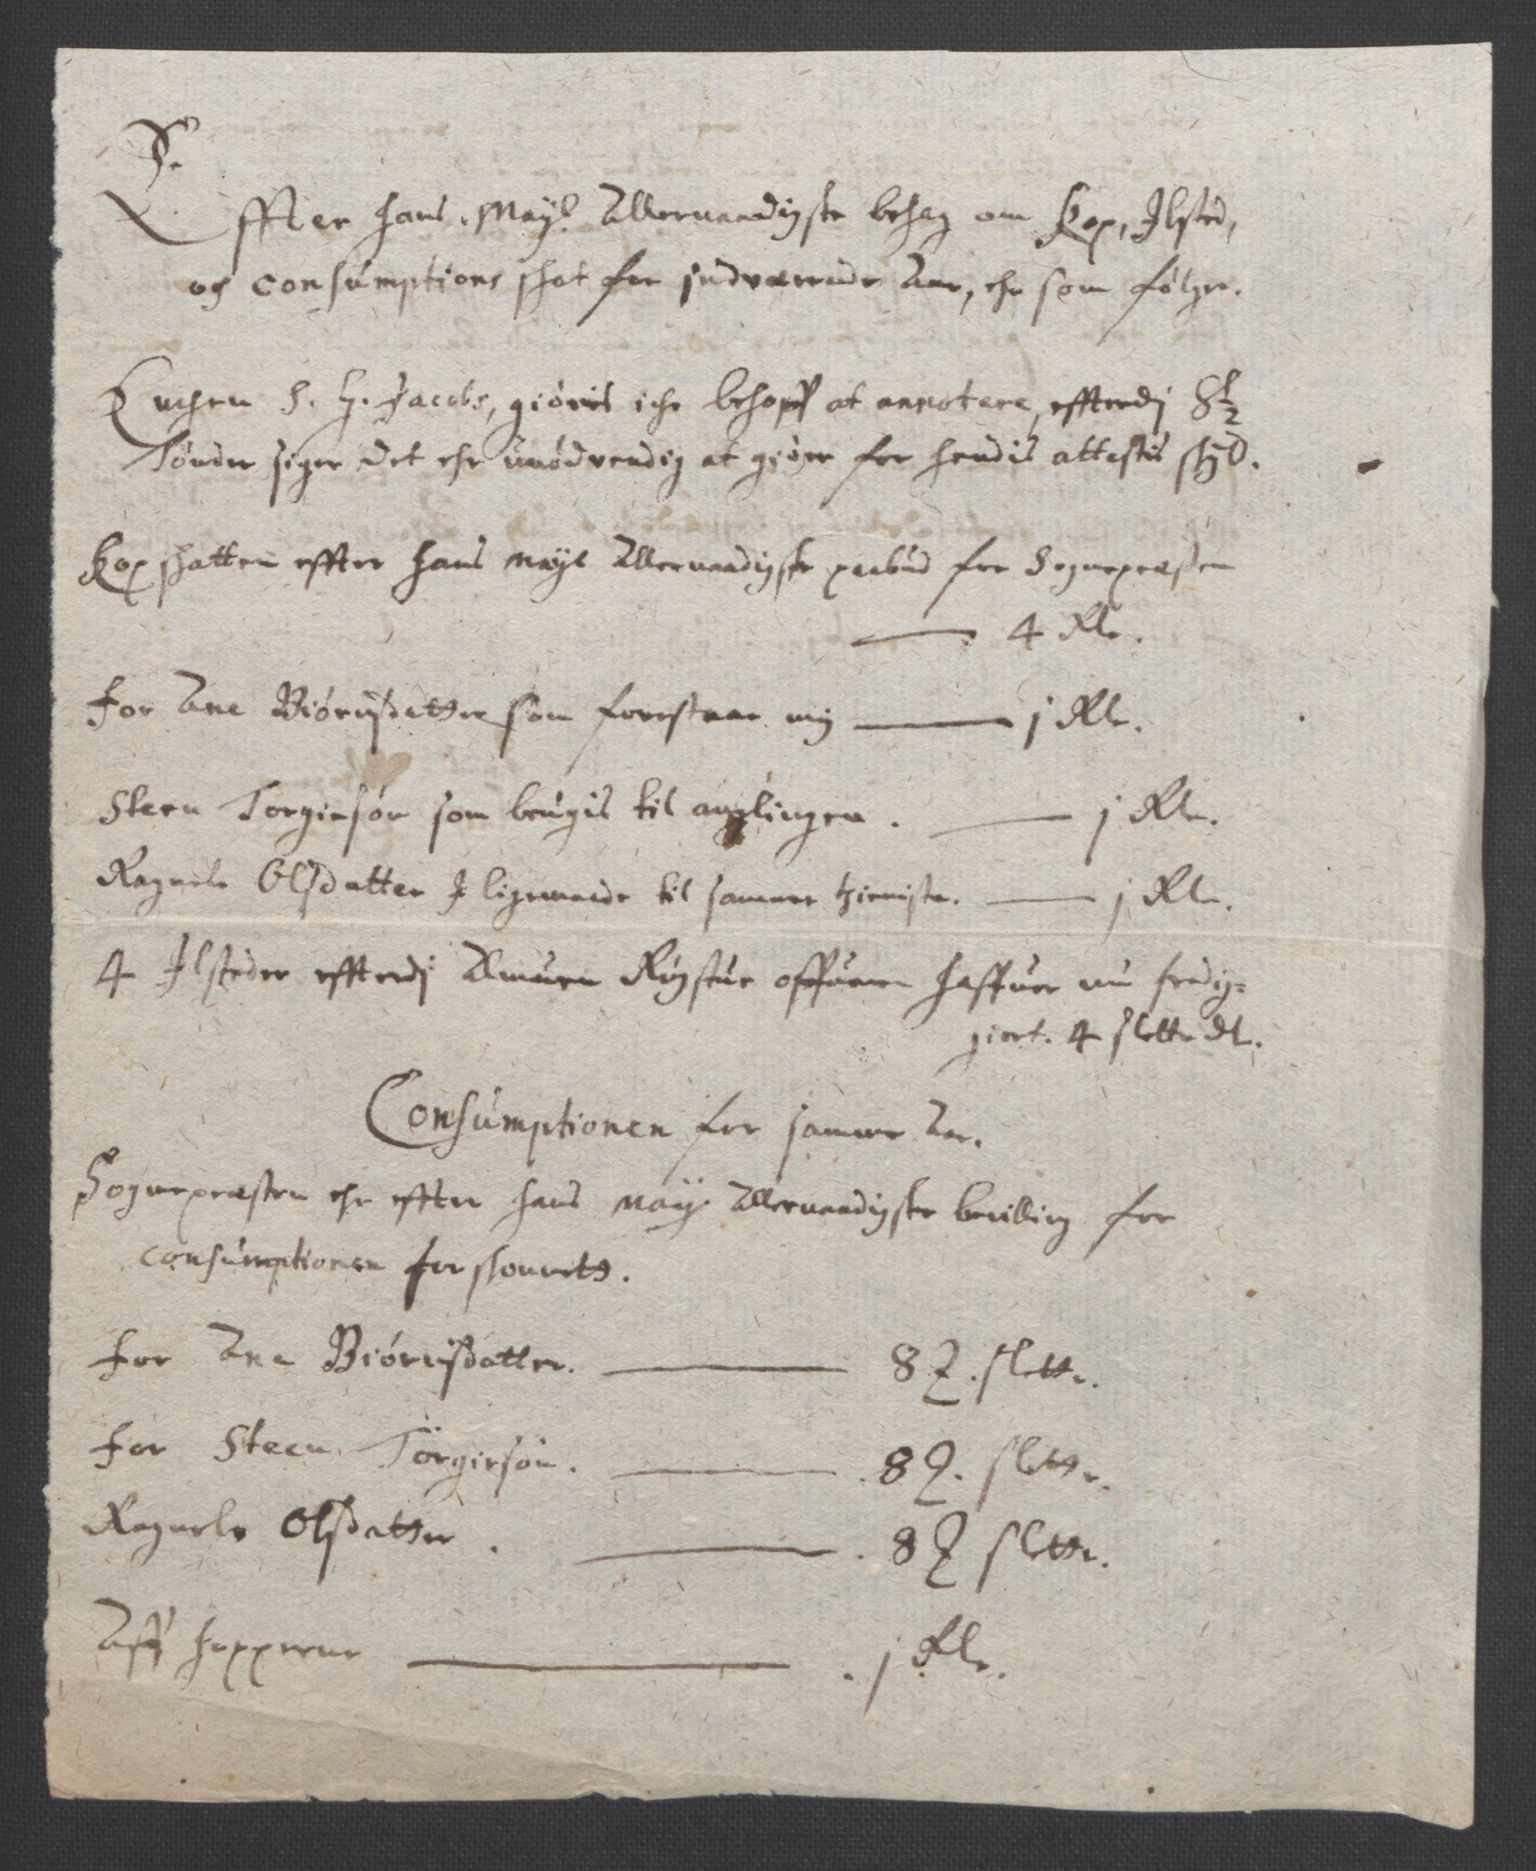 Effter hans Mayt Allernaadigste behag om Kop, Ilsted,
og Consumptions skat for indværende Aar, ehr som følger.
Enchen S. H. Jacobs, giøris iche behoff at annotere, effterdj
Tønder siger det ehr unødvendig at giøre for hendis attestis skyld.
Kopskatten effter hans Mayt Allernaadigste paabud for Sognepræsten
4 Rdr.
for Ane Biørnsdatter som forestaar mig 1 Rdr.
Steen Torgiersøn som brugis til auflingen. 1 Rdr.
Ragnele Olsdatter J ligemaade til samme thieniste. 1 Rdr.
4 Ilsteder effterdj Røgstue offuen haffuer nu ferdig-
giort. 4 slette dlr.
Consumptionen for samme Aar.
Sognepræsten ehr effter hans May Allernaadigste bevilling for
consumptionen forskonnet.
for Ane Biørnsdatter. 8 ß. slette.
for Steen Torgiersøn. 8 ß. slette.
Ragnele Olsdatter. 8 ß slette.
Aff hopperne 1 Rdr.